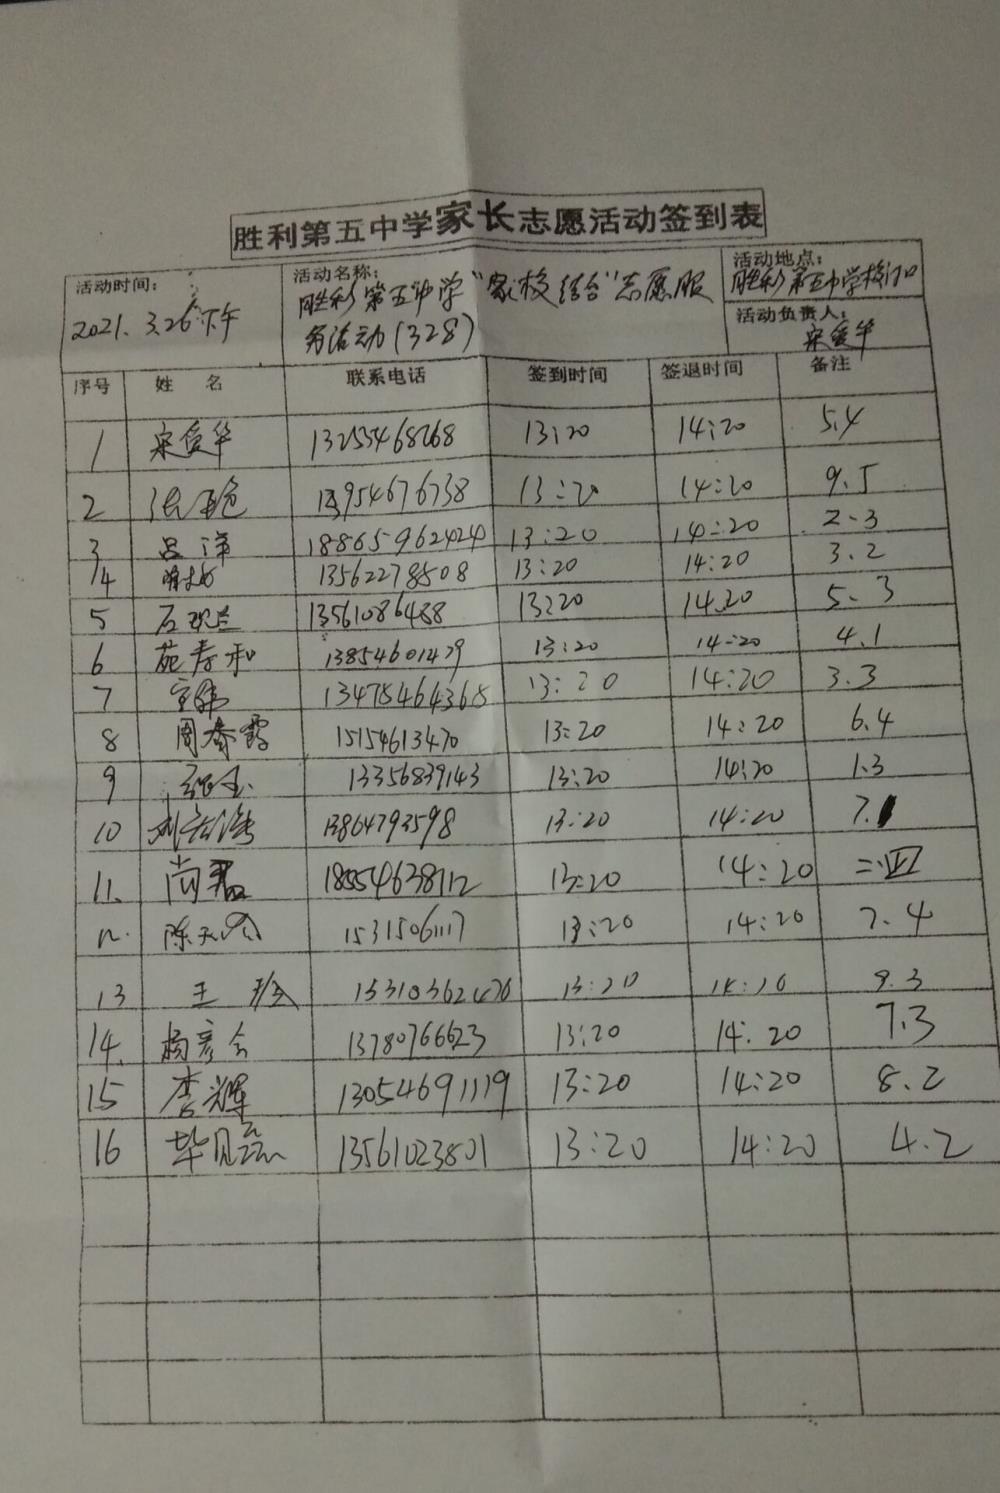 胜利第五中学家长志愿活动签到表
活动时间: 活动名称: 活动地点:
2021. 3.26下午 胜利第五中学"家校结合"志愿服 胜利第五中学校门口
务活动(328) 活动负责人:
宋爱华
序号 姓 名 联系电话 签到时间 签退时间 备注
1 宋爱华 13255468268 13:20 14:20 5.4
2 13954676738 13:20 14:20 9.5
3 吕洋 18865962424 13:20 14:20 2.3
4 13562278508 13:20 14:20 3.2
5 石 13561086488 13:20 14:20 5.3
6 苑寿和 13854601479 13:20 14:20 4.1
7 13475464368 13:20 14:20 3.3
8 周春霞 15154613470 13:20 14:20 6.4
9 13356839143 13:20 14:20 1.3
10 刘 13864793598 13:20 14:20 7.1
11. 尚君 18554638112 13:20 14:20 二.四
12. 陈 15315061117 13:20 14:20 7.4
13 王 13310362476 13:20 14:20 9.3
14. 杨彦会 13780766623 13:20 14:20 7.3
15 李辉 13054691119 13:20 14:20 8.2
16 毕见磊 13561023801 13:20 14:20 4.2